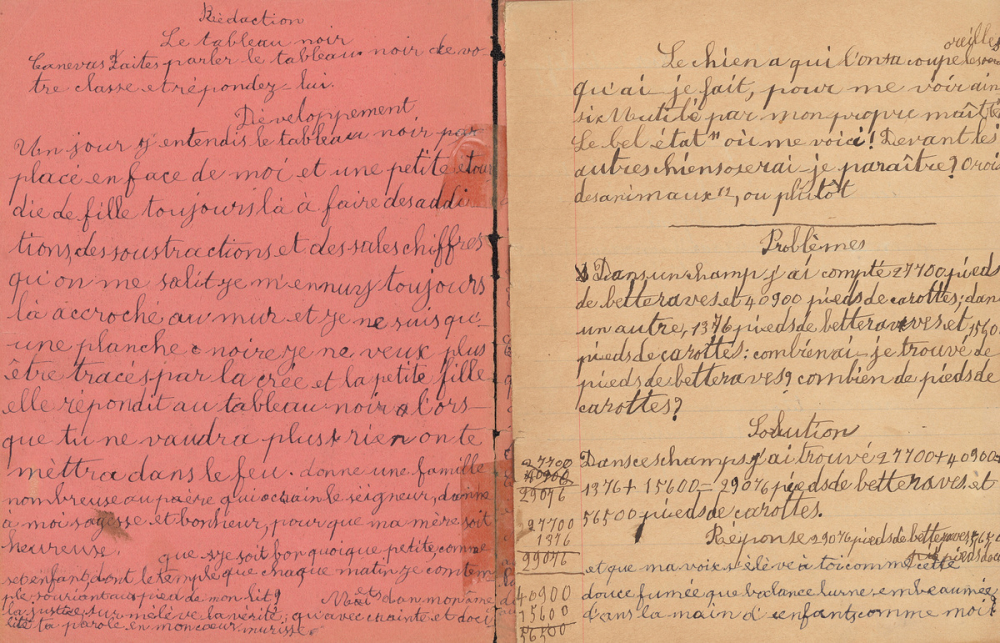 Rédaction
Le tableau noir
Canevas Faites parler le tableau noir de vo-
tre classe et répondez-lui.
Développement
Un jour j'entendis le tableau noir par
placé en face de moi et une petite étour
die de fille toujours là à faire des addi
tions, des soustractions et des sales chiffres
qu'on me salit je m'ennuy toujours
là accroché au mur et je ne suis qu'-
une planche noire je ne veux plus
être tracés par la crée et la petite fille
elle répondit au tableau noir lors-
que tu ne vaudra plus rien on te
mèttra dans le feu. donne une famille
nombreuse au père qui craint le seigneur, donne
à moi sagesse et bonheur, pour que ma mère soit
heureuse. que je soit bon quoique petite, comme
cet enfant, dont le temple que chaque matin je contem
ple souriant au pied de mon lit? Mets dan mon âme
la justice, sur mélève la vérité; qu'avec crainte et doci
lité ta parole en mon cœur murisse.
Le chien a qui l'on a coupé les oreilles
qu'ai-je fait, pour me voir ain
si Mutilé par mon propre maît
Le bel état" où me voici! Devant les
autres chiens oserai-je paraître? O roi
des animaux 12, ou plutôt
Problèmes
Dans un champ j'ai compté 27700 pieds
de betteraves et 40900 pieds de carottes; dan
un autre, 1376 pieds de betteraves et 1560
pieds de carottes: combien ai-je trouvé de
pieds de betteraves? combien de pieds de
carottes?
Solution
Dans ces champs j'ai trouvé 27700 + 40900=
1376 + 15600 = 29076 pieds de betteraves et
56500 pieds de carottes.
Réponse 29076 pieds de betteraves
et que ma voix s'élève à toi comme cette
douce fumée que balance l'urne embaumée
dans la main d'enfants comme moi
27700
40900
29076
27700
1376
99076
40900
15600
56500